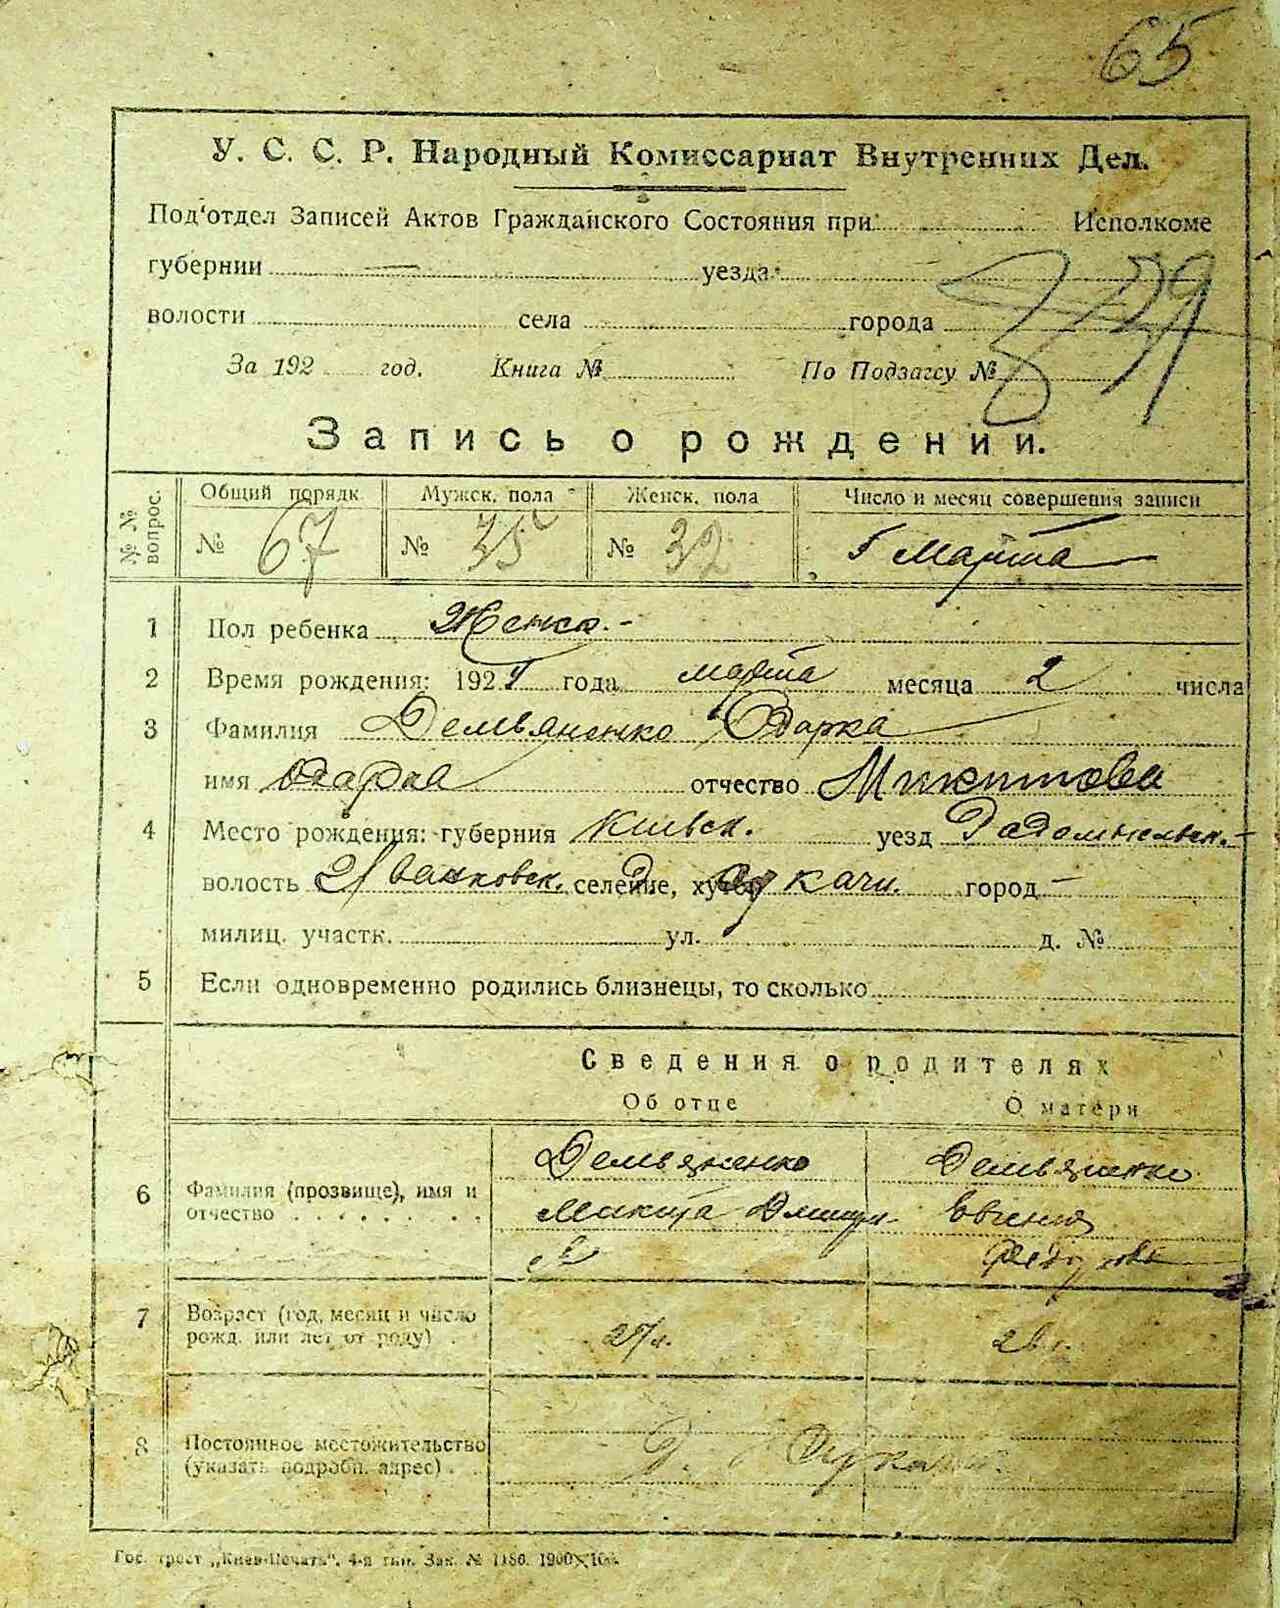 65
У. С. С. Р. Народный Комиссариат Внутренних Дел.
Под'отдел Записей Актов Гражданского Состояния при Исполкоме
губернии уезда
волости села города
За 192 год. Книга № По Подзагсу №
Запись о рождении.
№ № вопрос. Общий порядк Мужск. пола Женск. пола Число и месяц совершения записи
№ 67 № 35 № 32 5 Марта
1 Пол ребенка Женск.-
2 Время рождения: 192 года марта месяца 2 числа
3 Фамилия Демьяненко Одарка
имя Одарка отчество Микитова
4 Место рождения: губерния Киевск. уезд Радомысльск.-
волость Иванковск. селение, хутор Обукачи. город -
милиц. участк. ул. д. №
5 Если одновременно родились близнецы, то сколько
Сведения о родителях
Об отце О матери
6 Фамилия (прозвище), имя и отчество
Демьяненко Демьяненко
Микита
7 Возраст (год, месяц и число рожд. или лет от роду)
8 Постоянное местожительство (указать подробн. адрес)
Гос. трест „Киев-Печать“, 4-я тип. Зак. № 1180.